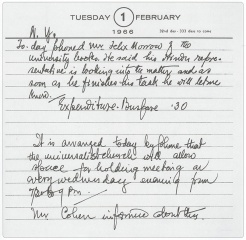 TUESDAY 1 FEBRUARY
1966
32nd day - 333 days to come
N. Y.
To-day phoned Mr. Felix Morrow of the
university books. He said his London repre-
sentative is looking into the matter and as
soon as he finishes his task he will let me
know.
Expenditure. Busfare .30
It is arranged today by phone that
the universalist church will allow
space for holding meeting on
every wednesday evening from
to 9 P.M.
Mr. Cohen informed about this.